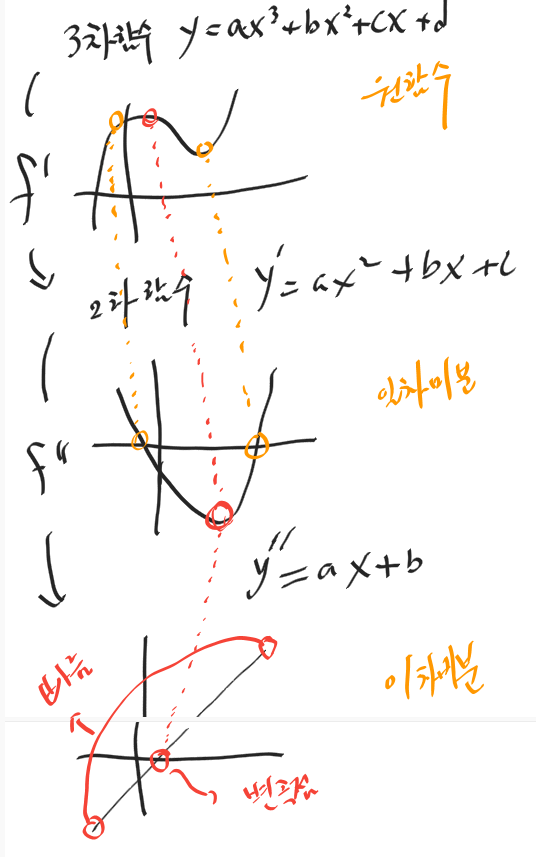 3차함수 y=ax³+bx²+cx+d
원함수
f'
2차함수 y'=ax²+bx+c
일차미분
f"
y''=ax+b
이차미분
변곡점